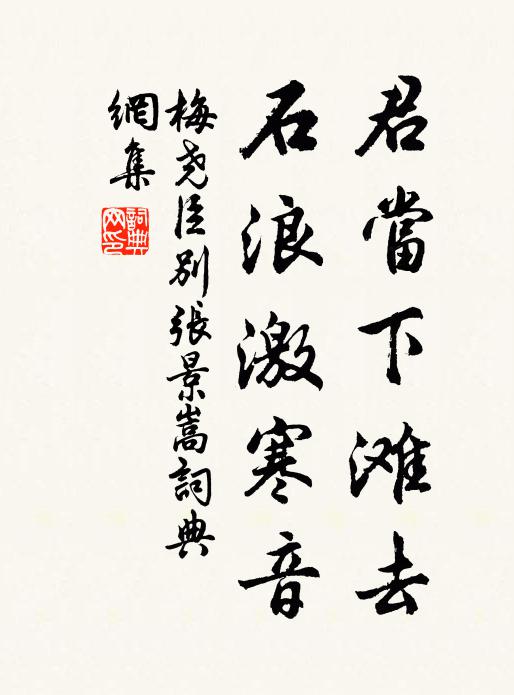 君當下滩去
石浪激寒音
梅尧臣别張景嵩詞典
網集
詞典
网印